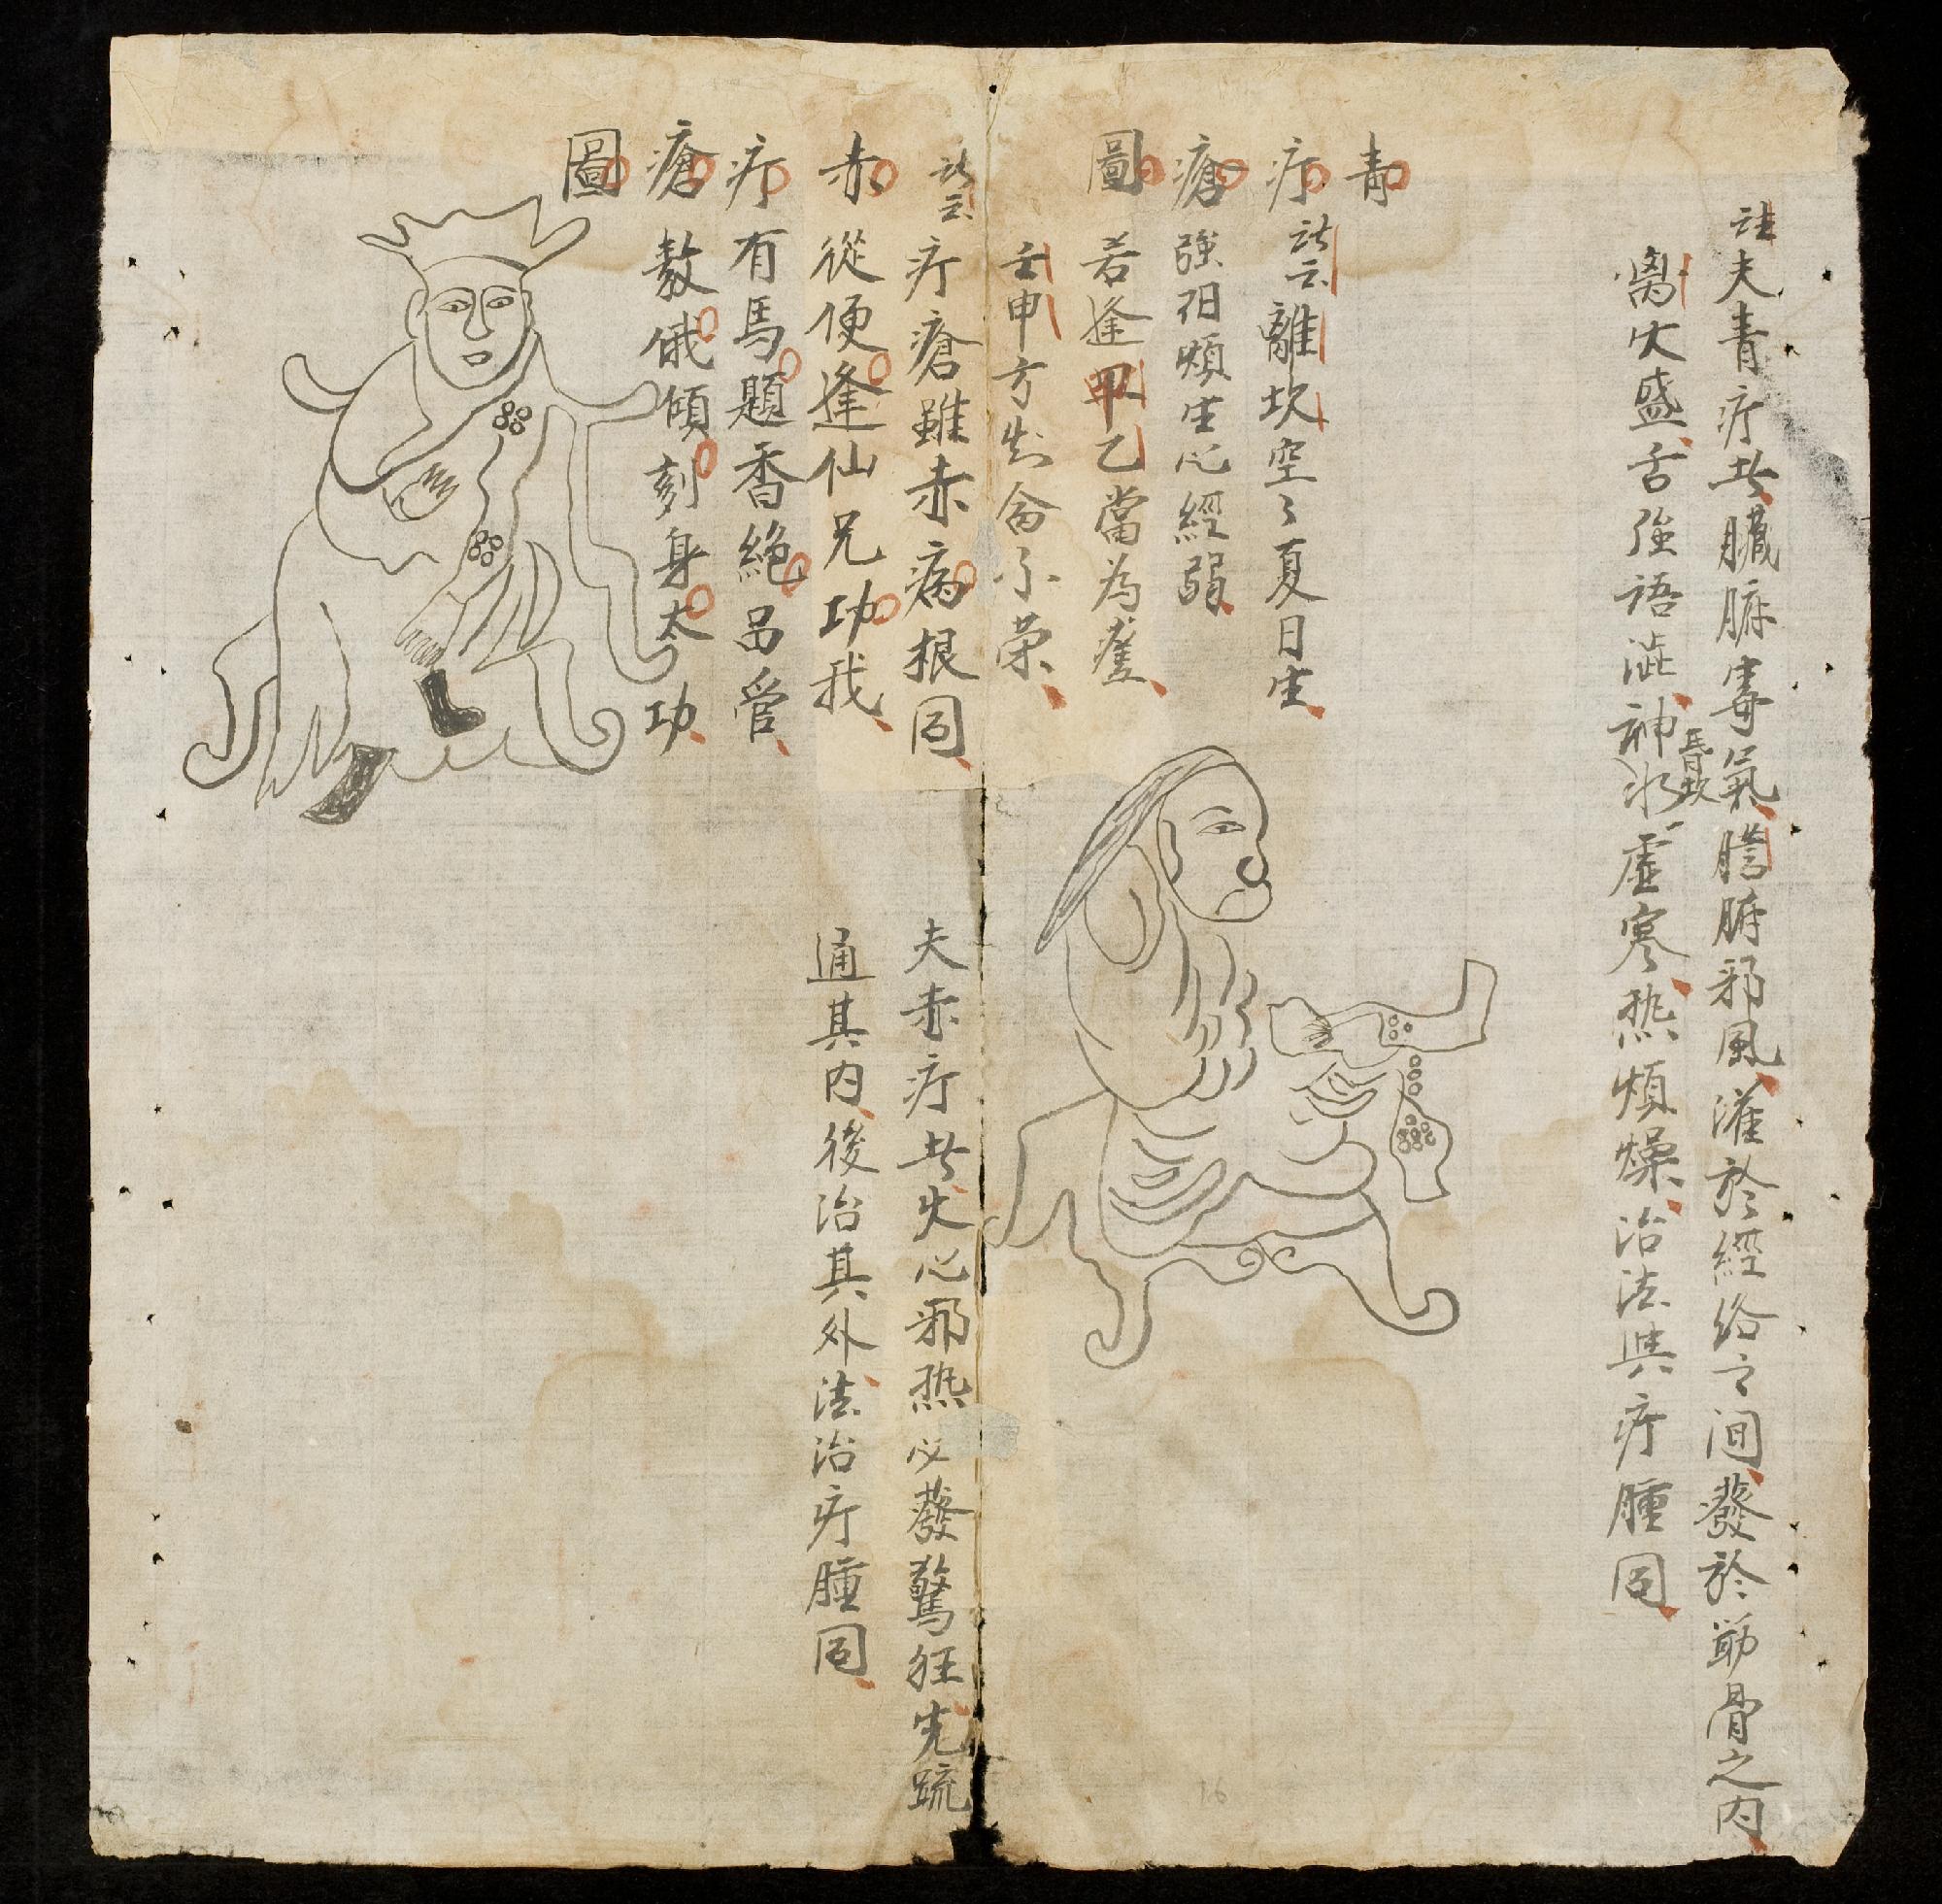 註夫青疔者臓腑毒氣膽腑邪風灌於經絡之间發於筋骨之内
离火盛舌強語澁神昏坎水虛寒热煩燥治法與疔腫同
青疔瘡圖
訣云離坎空々夏日生
強招煩生心經弱
若逢甲乙當為瘥
壬申方知命不荣
赤疔瘡圖
訣云疔瘡雖赤病根同
從便逢仙兄功我
有馬題香絶吕管
敖俄傾刻身太功
夫赤疔者火心邪热必發驚狂先疏
通其内後治其外法治疔腫同
16